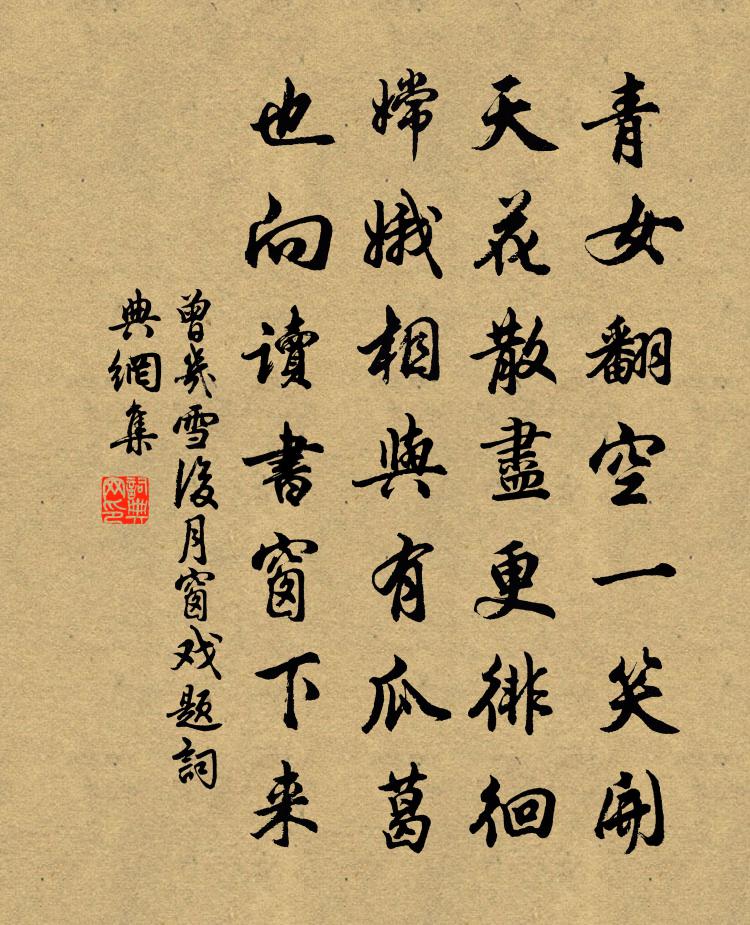 青女翻空一笑開
天花散盡更徘徊
嫦娥相與有瓜葛
也向讀書窗下来
曾幾雪後月窗戏題詞
典網集
詞典
网印